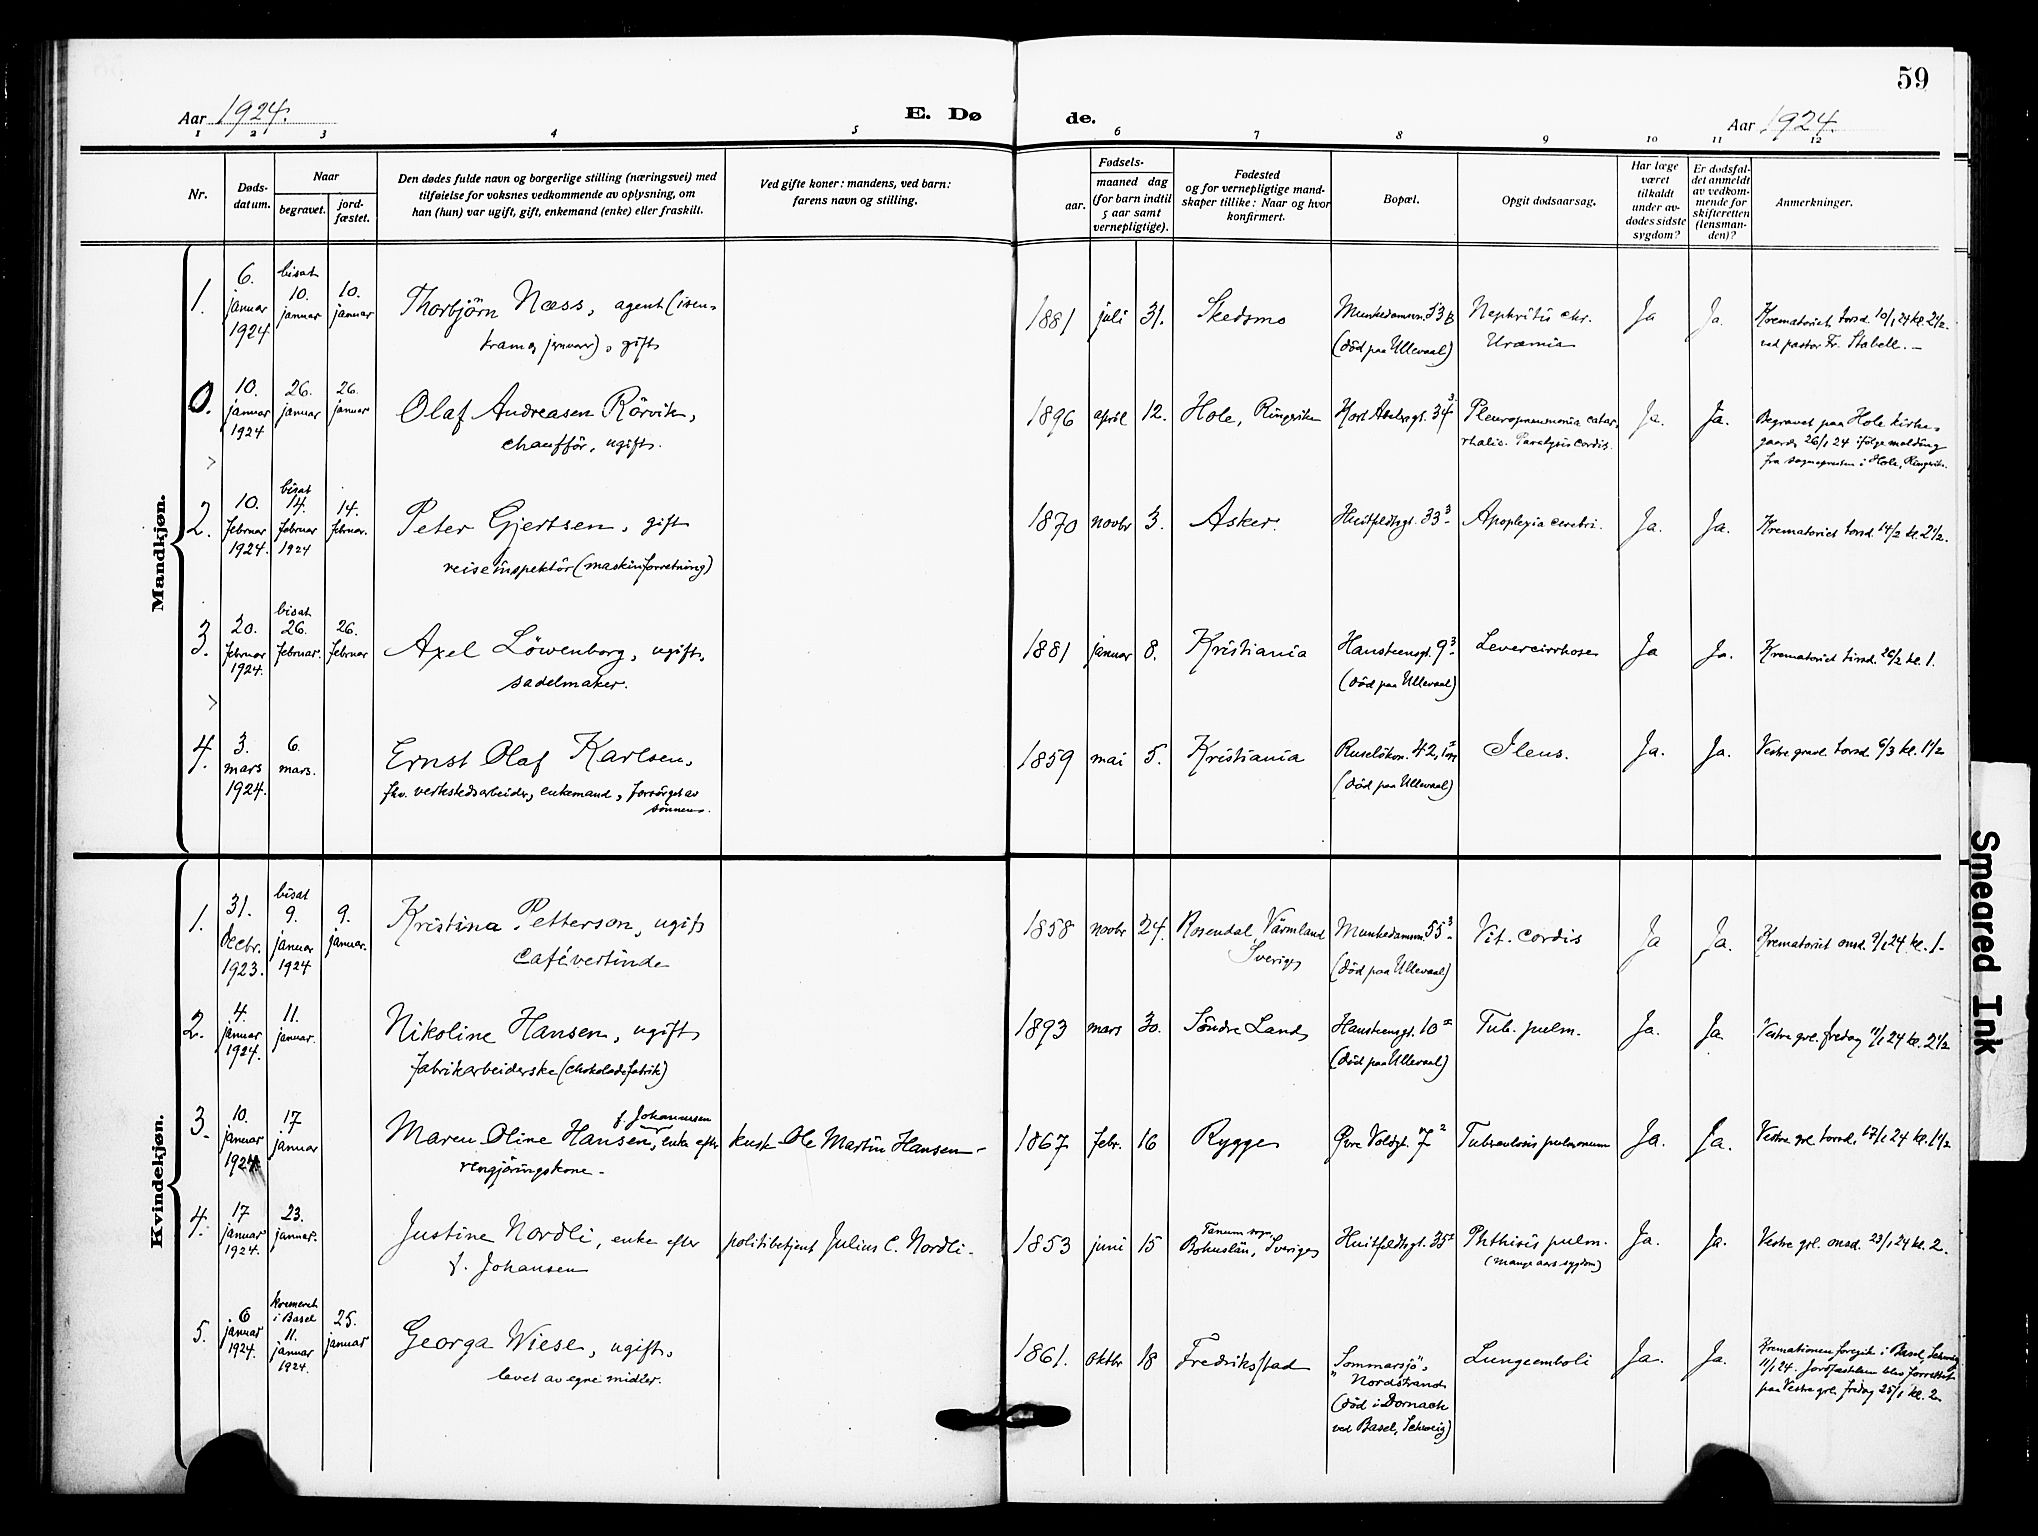 59
Aar 1924.
E. Dø
de.
Aar 1924.
1 2 3 4 5 6 7 8 9 10 11 12
Nr.
Døds-
datum.
Naar
begravet.
jord-
fæstet.
Den dødes fulde navn og borgerlige stilling (næringsvei) med
tilføielse for voksnes vedkommende av oplysning, om
han (hun) var ugift, gift, enkemand (enke) eller fraskilt.
Ved gifte koner: mandens, ved barn:
farens navn og stilling.
Fødsels-
aar.
maaned dag
(for barn indtil
5 aar samt
vernepligtige).
Fødested
og for vernepligtige mand-
skaper tillike: Naar og hvor
konfirmert.
Bopæl.
Opgit dødsaarsag.
Har læge
været
tilkaldt
under av-
dødes sidste
sygdom?
Er dødsfal-
det anmeldt
av vedkom-
mende for
skifteretten
(lensman-
den)?
Anmerkninger.
Mandkjøn.
1.
6.
januar
1924
bisat
10.
januar
10.
januar
Thorbjörn Næss, agent (isen-
kram og jernvarer), gift
1881 juli 31. Skedsmo
Munkedamsvn. 53 B
(död paa Ullevaal)
Nephritis chr.
Uræmia
Ja Ja.
Krematoriet torsd. 10/1 24 kl. 2 1/2.
ved pastor Fr. Stabell. -
0.
10.
januar
1924
26.
januar
26.
januar
Olaf Andreasen Rörvik,
chaufför, ugift.
1896 april 12. Hole, Ringerike
Hjort Abelsgt. 34 3
Pleuropneumonia catar-
rhalis. Paralysis cordis.
Ja. Ja.
Begravet paa Hole kirke-
gaard 26/1 24 ifølge melding
fra sognepresten i Hole, Ringerike.
2.
10.
februar
1924.
bisat
14.
februar
1924
14.
februar.
Peter Gjertsen, gift
reiseinspektör (maskinforretning)
1870 novbr 3. Asker.
Huitfeldtsgt. 33 3
Apoplexia cerebri.
Ja. Ja.
Krematoriet torsd. 14/2 kl. 2 1/2.
3.
20.
februar
1924.
bisat
26.
februar.
26.
februar
Axel Löwenborg, ugift,
sadelmaker.
1881 januar 8. Kristiania
Hansteensgt. 9 3
(död paa Ullevaal)
Levercirrhose
Ja Ja.
Krematoriet tirsd. 26/2 kl. 1.
4.
3.
mars
1924.
6.
mars.
Ernst Olaf Karlsen,
fhv. verkstedsarbeider, enkemand, forsörget av
sönnen.
1859 mai 5. Kristiania
Ruselökvn. 42,
(död paa Ullevaal)
Ileus.
Ja. Ja.
Vestre gravl. torsd. 6/3 kl. 1 1/2
Kvindekjøn.
1.
31.
decbr.
1923.
bisat
9.
januar
1924
9.
januar.
Kristina Petterson, ugift
cafévertinde
1858 novbr 24. Rosendal, Värmland
Sverige
Munkedamsvn. 55 3
(död paa Ullevaal)
Vit. cordis
Ja Ja.
Krematoriet onsd. 9/1 24 kl. 1.
2.
4.
januar
1924.
11.
januar.
Nikoline Hansen, ugift
fabrikarbeiderske (chokoladefabrik)
1893 mars 30. Söndre Land
Hansteensgt. 10 II
(död paa Ullevaal)
Tub. pulm.
Ja. Ja
Vestre grl. fredag 11/1 24 kl. 2 1/2
3.
10.
januar
1924.
17
januar
f. Johannesen
Maren Oline Hansen, enke efter
rengjöringskone.
kusk Ole Martin Hansen.
1867 febr. 16 Rygge
Øvre Voldgt. 7 2
Tuberculosis pulmonum
Ja. Ja.
Vestre grl. torsd. 17/1 24 kl. 1 1/2
4.
17
januar
1924.
23.
januar.
Justine Nordli, enke efter
f. Johansen
politibetjent Julius C. Nordli.
1853 juni 15
Tanum sogn
Bohuslän, Sverige
Huitfeldtsgt. 35 I
Phthisis pulm.
(mange aars sygdom)
Ja. Ja.
Vestre grl. onsd. 23/1 24 kl. 2.
5.
6
januar
1924.
kremeret
i Basel
11.
januar
1924.
25.
januar
Georga Wiese, ugift,
levet av egne midler.
1861. oktbr 18 Fredriksstad
"Sommarsjö",
Nordstrand
(död i Dornach
ved Basel, Schweiz)
Lungeemboli
Ja. Ja.
Kremationen foregik i Basel, Schweiz
11/1 24. Jordfæstelsen blev forrettet
paa Vestre grl. fredag 25/1 kl. 2
Smeared Ink